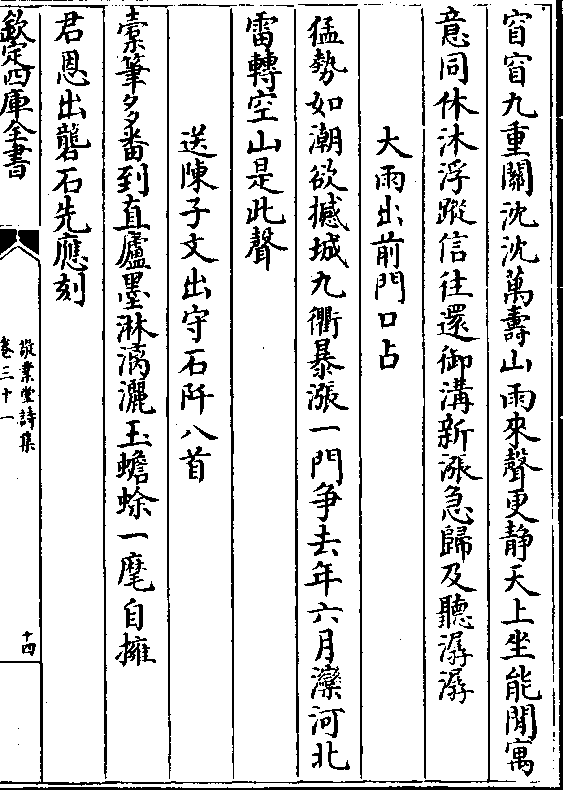 窅窅九重關沈沈萬壽山雨來聲更静天上坐能閒寓
意同休沐浮蹤信往還御溝新漲急歸及聽潺潺
大雨出前門口占
猛勢如潮欲撼城九衢暴漲一門争去年六月灤河北
雷轉空山是此聲
送陳子文出守石阡八首
橐筆多番到直廬墨淋漓灑玉蟾蜍一麾自擁
君恩出礱石先應刻
欽定四庫全書
敬業堂詩集
卷三十一
十四